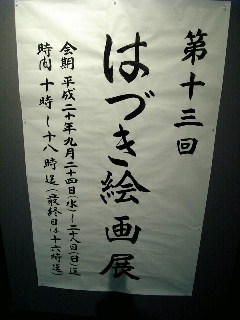 第十三回
はづき絵画展
会期 平成二十年九月二十四日(水)~二十八日(日)迄
時間 十時~十八時迄(最終日は十六時迄)